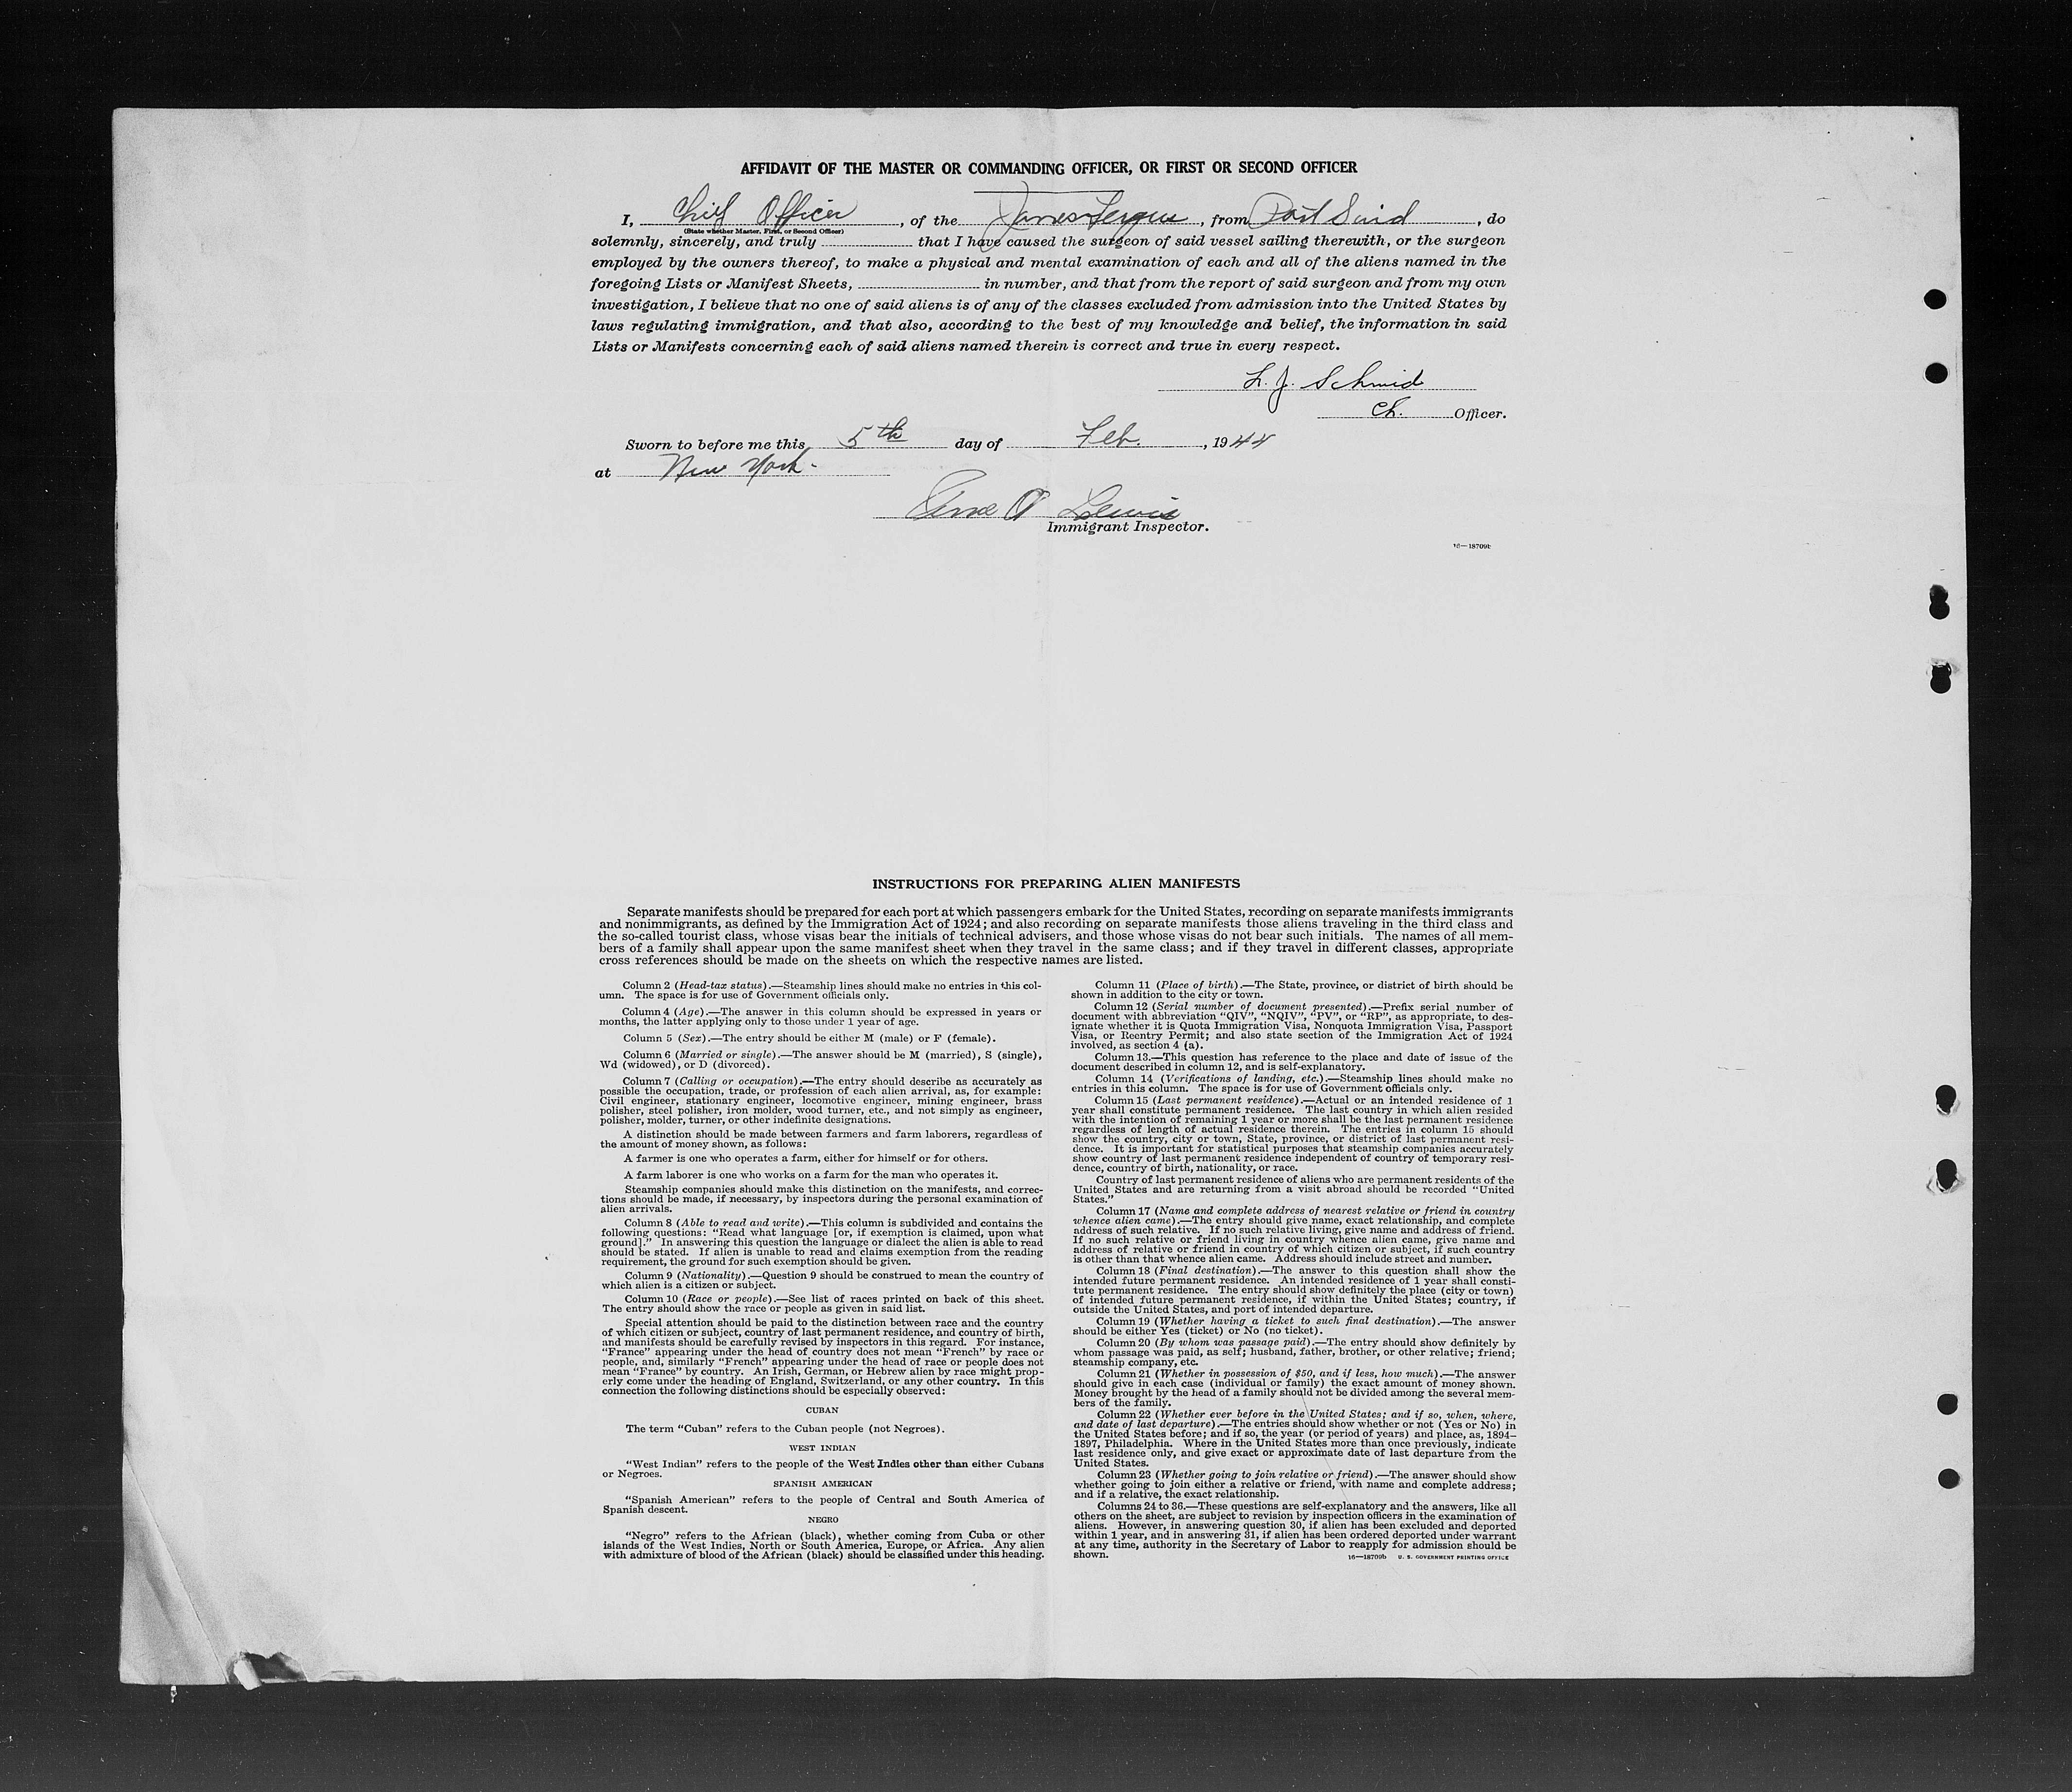 AFFIDAVIT OF THE MASTER OR COMMANDING OFFICER, OR FIRST OR SECOND OFFICER
I, Chief Officer, of the James Fergus, from Port Said, do
(State whether Master, First, or Second Officer)
solemnly, sincerely, and truly that I have caused the surgeon of said vessel sailing therewith, or the surgeon
employed by the owners thereof, to make a physical and mental examination of each and all of the aliens named in the
foregoing Lists or Manifest Sheets, in number, and that from the report of said surgeon and from my own
investigation, I believe that no one of said aliens is of any of the classes excluded from admission into the United States by
laws regulating immigration, and that also, according to the best of my knowledge and belief, the information in said
Lists or Manifests concerning each of said aliens named therein is correct and true in every respect.
L. J. Schmid
Ch. Officer.
Sworn to before me this 5th day of Feb., 1944
at New York.
Lewis
Immigrant Inspector.
16—18709b
INSTRUCTIONS FOR PREPARING ALIEN MANIFESTS
Separate manifests should be prepared for each port at which passengers embark for the United States, recording on separate manifests immigrants
and nonimmigrants, as defined by the Immigration Act of 1924; and also recording on separate manifests those aliens traveling in the third class and
the so-called tourist class, whose visas bear the initials of technical advisers, and those whose visas do not bear such initials. The names of all mem-
bers of a family shall appear upon the same manifest sheet when they travel in the same class; and if they travel in different classes, appropriate
cross references should be made on the sheets on which the respective names are listed.
Column 2 (Head-tax status).—Steamship lines should make no entries in this col-
umn. The space is for use of Government officials only.
Column 4 (Age).—The answer in this column should be expressed in years or
months, the latter applying only to those under 1 year of age.
Column 5 (Sex).—The entry should be either M (male) or F (female).
Column 6 (Married or single).—The answer should be M (married), S (single),
Wd (widowed), or D (divorced).
Column 7 (Calling or occupation).—The entry should describe as accurately as
possible the occupation, trade, or profession of each alien arrival, as, for example:
Civil engineer, stationary engineer, locomotive engineer, mining engineer, brass
polisher, steel polisher, iron molder, wood turner, etc., and not simply as engineer,
polisher, molder, turner, or other indefinite designations.
A distinction should be made between farmers and farm laborers, regardless of
the amount of money shown, as follows:
A farmer is one who operates a farm, either for himself or for others.
A farm laborer is one who works on a farm for the man who operates it.
Steamship companies should make this distinction on the manifests, and correc-
tions should be made, if necessary, by inspectors during the personal examination of
alien arrivals.
Column 8 (Able to read and write).—This column is subdivided and contains the
following questions: "Read what language [or, if exemption is claimed, upon what
ground]." In answering this question the language or dialect the alien is able to read
should be stated. If alien is unable to read and claims exemption from the reading
requirement, the ground for such exemption should be given.
Column 9 (Nationality).—Question 9 should be construed to mean the country of
which alien is a citizen or subject.
Column 10 (Race or people).—See list of races printed on back of this sheet.
The entry should show the race or people as given in said list.
Special attention should be paid to the distinction between race and the country
of which citizen or subject, country of last permanent residence, and country of birth,
and manifests should be carefully revised by inspectors in this regard. For instance,
"France" appearing under the head of country does not mean "French" by race or
people, and, similarly "French" appearing under the head of race or people does not
mean "France" by country. An Irish, German, or Hebrew alien by race might prop-
erly come under the heading of England, Switzerland, or any other country. In this
connection the following distinctions should be especially observed:
CUBAN
The term "Cuban" refers to the Cuban people (not Negroes).
WEST INDIAN
"West Indian" refers to the people of the West Indies other than either Cubans
or Negroes.
SPANISH AMERICAN
"Spanish American" refers to the people of Central and South America of
Spanish descent.
NEGRO
"Negro" refers to the African (black), whether coming from Cuba or other
islands of the West Indies, North or South America, Europe, or Africa. Any alien
with admixture of blood of the African (black) should be classified under this heading.
Column 11 (Place of birth).—The State, province, or district of birth should be
shown in addition to the city or town.
Column 12 (Serial number of document presented).—Prefix serial number of
document with abbreviation "QIV", "NQIV", "PV", or "RP", as appropriate, to des-
ignate whether it is Quota Immigration Visa, Nonquota Immigration Visa, Passport
Visa, or Reentry Permit; and also state section of the Immigration Act of 1924
involved, as section 4 (a).
Column 13.—This question has reference to the place and date of issue of the
document described in column 12, and is self-explanatory.
Column 14 (Verifications of landing, etc.).—Steamship lines should make no
entries in this column. The space is for use of Government officials only.
Column 15 (Last permanent residence).—Actual or an intended residence of 1
year shall constitute permanent residence. The last country in which alien resided
with the intention of remaining 1 year or more shall be the last permanent residence
regardless of length of actual residence therein. The entries in column 15 should
show the country, city or town, State, province, or district of last permanent resi-
dence. It is important for statistical purposes that steamship companies accurately
show country of last permanent residence independent of country of temporary resi-
dence, country of birth, nationality, or race.
Country of last permanent residence of aliens who are permanent residents of the
United States and are returning from a visit abroad should be recorded "United
States."
Column 17 (Name and complete address of nearest relative or friend in country
whence alien came).—The entry should give name, exact relationship, and complete
address of such relative. If no such relative living, give name and address of friend.
If no such relative or friend living in country whence alien came, give name and
address of relative or friend in country of which citizen or subject, if such country
is other than that whence alien came. Address should include street and number.
Column 18 (Final destination).—The answer to this question shall show the
intended future permanent residence. An intended residence of 1 year shall consti-
tute permanent residence. The entry should show definitely the place (city or town)
of intended future permanent residence, if within the United States; country, if
outside the United States, and port of intended departure.
Column 19 (Whether having a ticket to such final destination).—The answer
should be either Yes (ticket) or No (no ticket).
Column 20 (By whom was passage paid).—The entry should show definitely by
whom passage was paid, as self; husband, father, brother, or other relative; friend;
steamship company, etc.
Column 21 (Whether in possession of $50, and if less, how much).—The answer
should give in each case (individual or family) the exact amount of money shown.
Money brought by the head of a family should not be divided among the several mem-
bers of the family.
Column 22 (Whether ever before in the United States; and if so, when, where,
and date of last departure).—The entries should show whether or not (Yes or No) in
the United States before; and if so, the year (or period of years) and place, as, 1894–
1897, Philadelphia. Where in the United States more than once previously, indicate
last residence only, and give exact or approximate date of last departure from the
United States.
Column 23 (Whether going to join relative or friend).—The answer should show
whether going to join either a relative or friend, with name and complete address;
and if a relative, the exact relationship.
Columns 24 to 36.—These questions are self-explanatory and the answers, like all
others on the sheet, are subject to revision by inspection officers in the examination of
aliens. However, in answering question 30, if alien has been excluded and deported
within 1 year, and in answering 31, if alien has been ordered deported under warrant
at any time, authority in the Secretary of Labor to reapply for admission should be
shown.
16—18709b U. S. GOVERNMENT PRINTING OFFICE